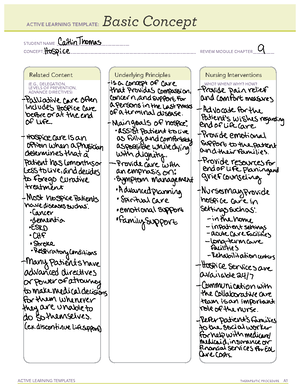 ACTIVE LEARNING TEMPLATE: Basic Concept
STUDENT NAME Caitlin Thomas
CONCEPT Hospice
REVIEW MODULE CHAPTER 9
Related Content
(E.G., DELEGATION,
LEVELS OF PREVENTION,
ADVANCE DIRECTIVES)
- Palliative care often
includes hospice care
before or at the end
of life.
- Hospice care is an
option when a physician
determines that a
patient has 6 months or
less to live and decides
to forego curative
treatment
- Most Hospice Patients
have diseases such as:
• Cancer
• dementia
• ESRD
• CHF
• Stroke
• Respiratory conditions
- Many Patients have
advanced directives
or Power of attorney
to make medical decisions
for them whenever
they are unable to
do so themselves.
(ex. discontinue life support)
Underlying Principles
- Is a concept of care
that provides compassion
concern, and support for
a persons in the last phases
of a terminal disease.
- Main goals of hospice
• assist patient to live
as fully and comfortably
as possible while dying
with dignity.
- Provide care with
an emphasis on:
• Symptom management
• Advanced planning
• Spiritual care
• emotional support
• Family support
Nursing Interventions
WHO? WHEN? WHY? HOW?
- Provide pain relief
and comfort measures
- Advocate for the
Patient's wishes regarding
end of life care.
- Provide emotional
support to the patient
and their families
- Provide resources for
end of life planning and
grief counseling
- Nurses may provide
hospice care in
settings such as:
- in the home
- inpatient settings
- acute care facilities
- long-term care
facilities
- Rehabilitation centers
- Hospice Services are
available 24/7
- Communication with
the collaborative care
team is an important
role of the nurse.
- Refer patients & families
to the social worker
for help with medicare/
medicaid, insurance or
financial services for EOL
care costs.
ACTIVE LEARNING TEMPLATES
THERAPEUTIC PROCEDURE A1